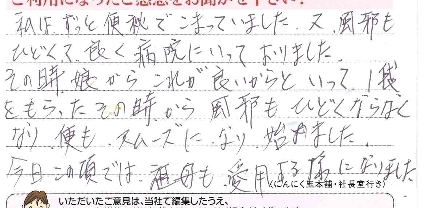 ご利用になったご感想をお聞かせ下さい!
私はずっと便秘でこまっていました。又、風邪も
ひどくて良く病院にいっておりました。
その時娘からこれが良いからといって、1袋
をもらったその時から風邪もひどくならなく
なり、便もスムーズになり始めました。
今日この頃では、祖母も愛用する様になりました
(にんにく玉本舗・社長室行き)
いただいたご意見は、当社で編集したうえ、